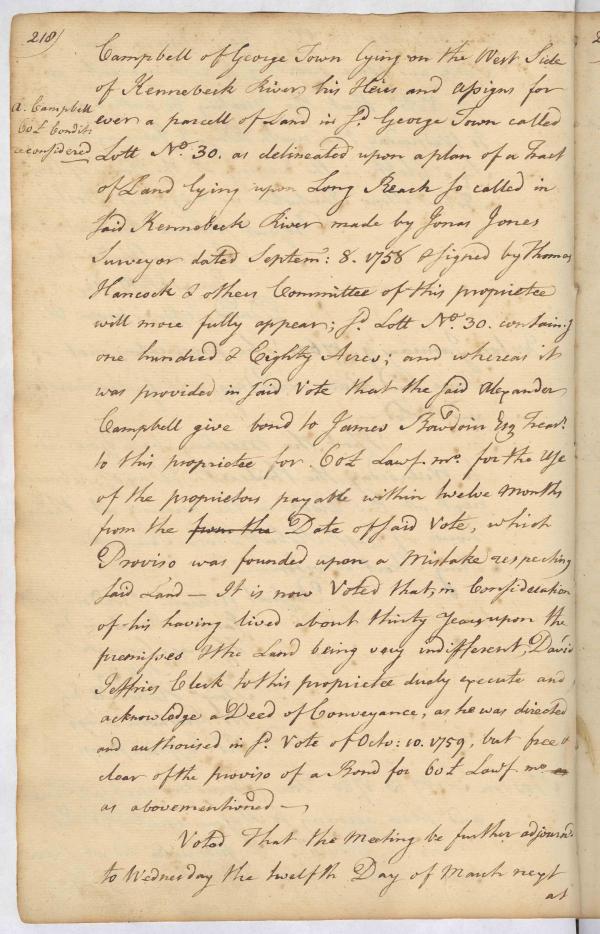 218)
Campbell of George Town lying on the West Side
of Kennebeck River, his Heirs and Assigns for
a. Campbell
60£ Condits
reconsidered
ever a parcell of Land in Sd. George Town called
Lott No. 30. as delineated upon a plan of a Tract
of Land lying upon Long Reach so called in
said Kennebeck River made by Jonas Jones
Surveyor dated Septemr: 8. 1758 & signed by Thomas
Hancock & others Committee of this proprietee
will more fully appear; Sd. Lott No. 30. containg
one hundred & Eighty Acres; and whereas it
was provided in said Vote that the said Alexander
Campbell give bond to James Bowdoin Esq Treasr.
to this proprietee for 60£ Lawf. mo. for the Use
of the proprietors payable within twelve Months
from the from the Date of said Vote, which
Proviso was founded upon a Mistake respecting
said Land — It is now Voted that, in Consideration
of his having lived about thirty Years upon the
premisses & the Land being very indifferent, David
Jeffries Clerk to this proprietee duely execute and
acknowledge a Deed of Conveyance, as he was directed
and authorised in Sd. Vote of Octo: 10. 1759, but free &
clear of the proviso of a Bond for 60£ Lawf. mo.
as abovementioned —
Voted That the Meeting be further adjournd.
to Wednesday the twelfth Day of March next
at